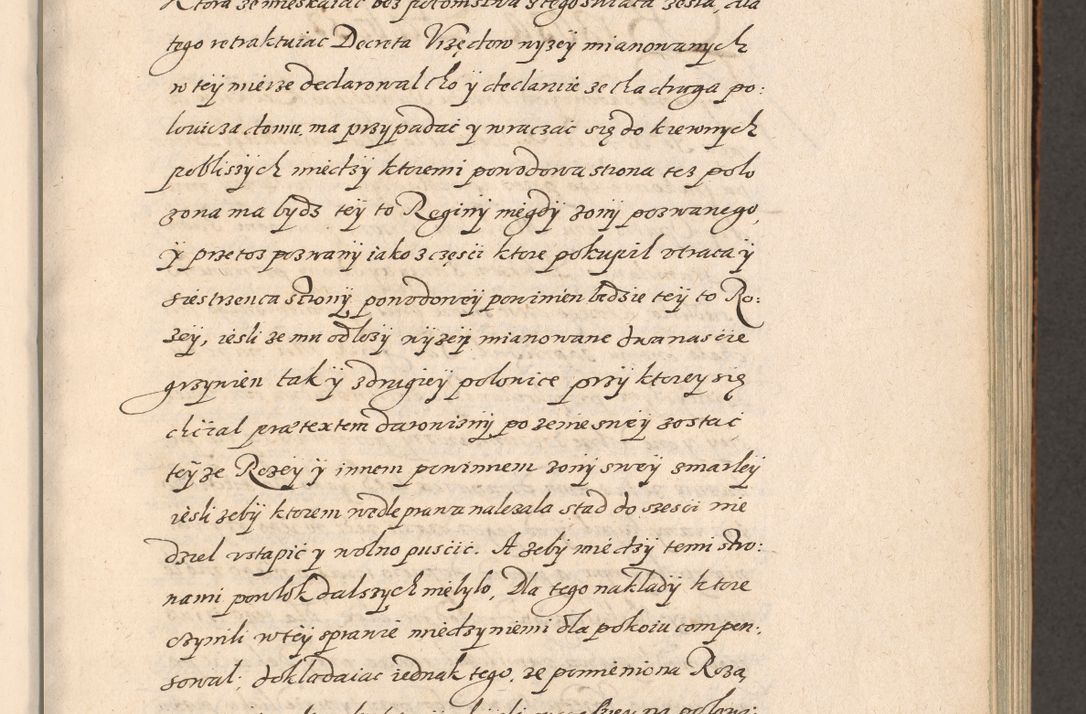 Ktora ze mieskaiąc bez potomstwa z tego swiata zesła, dla
tego retraktuiąc Decreta Vrzędow nyzey mianowanych
w tey mierze declarował tho y declaruie ze tha druga po:
łowicza domu, ma przypadać y wraczać się do krewnych
pobliszych miedzy ktoremi powodowa strona tez poło
zona ma bydz tey to Reginy niegdy zony pozwanego,
y przetoz pozwany iako z części ktore pokupił vtraca y
siestrzenca strony powodowey powinien bedzie tey to Ro:
zey, iesli ze mu odłozy nyzey mianowane dwanascie
grzywien tak y z drugiey połowice przy ktorey się
chciał prætextem darowizny po zenie swey zostac
teyze Rozey y innem powinnem zony swey zmarłey
iesli zeby ktorem wedle prawa nalezała stąd do szesci nie
dziel vstąpić y wolno puscić. A zeby miedzy temi stro:
nami powłok dalszych nie było, Dla tego nakłady ktore
czynili w tey sprawie miedzy niemi dla pokoiu compen:
sował; dokładaiąc iednak tego, ze pomieniona Roza,